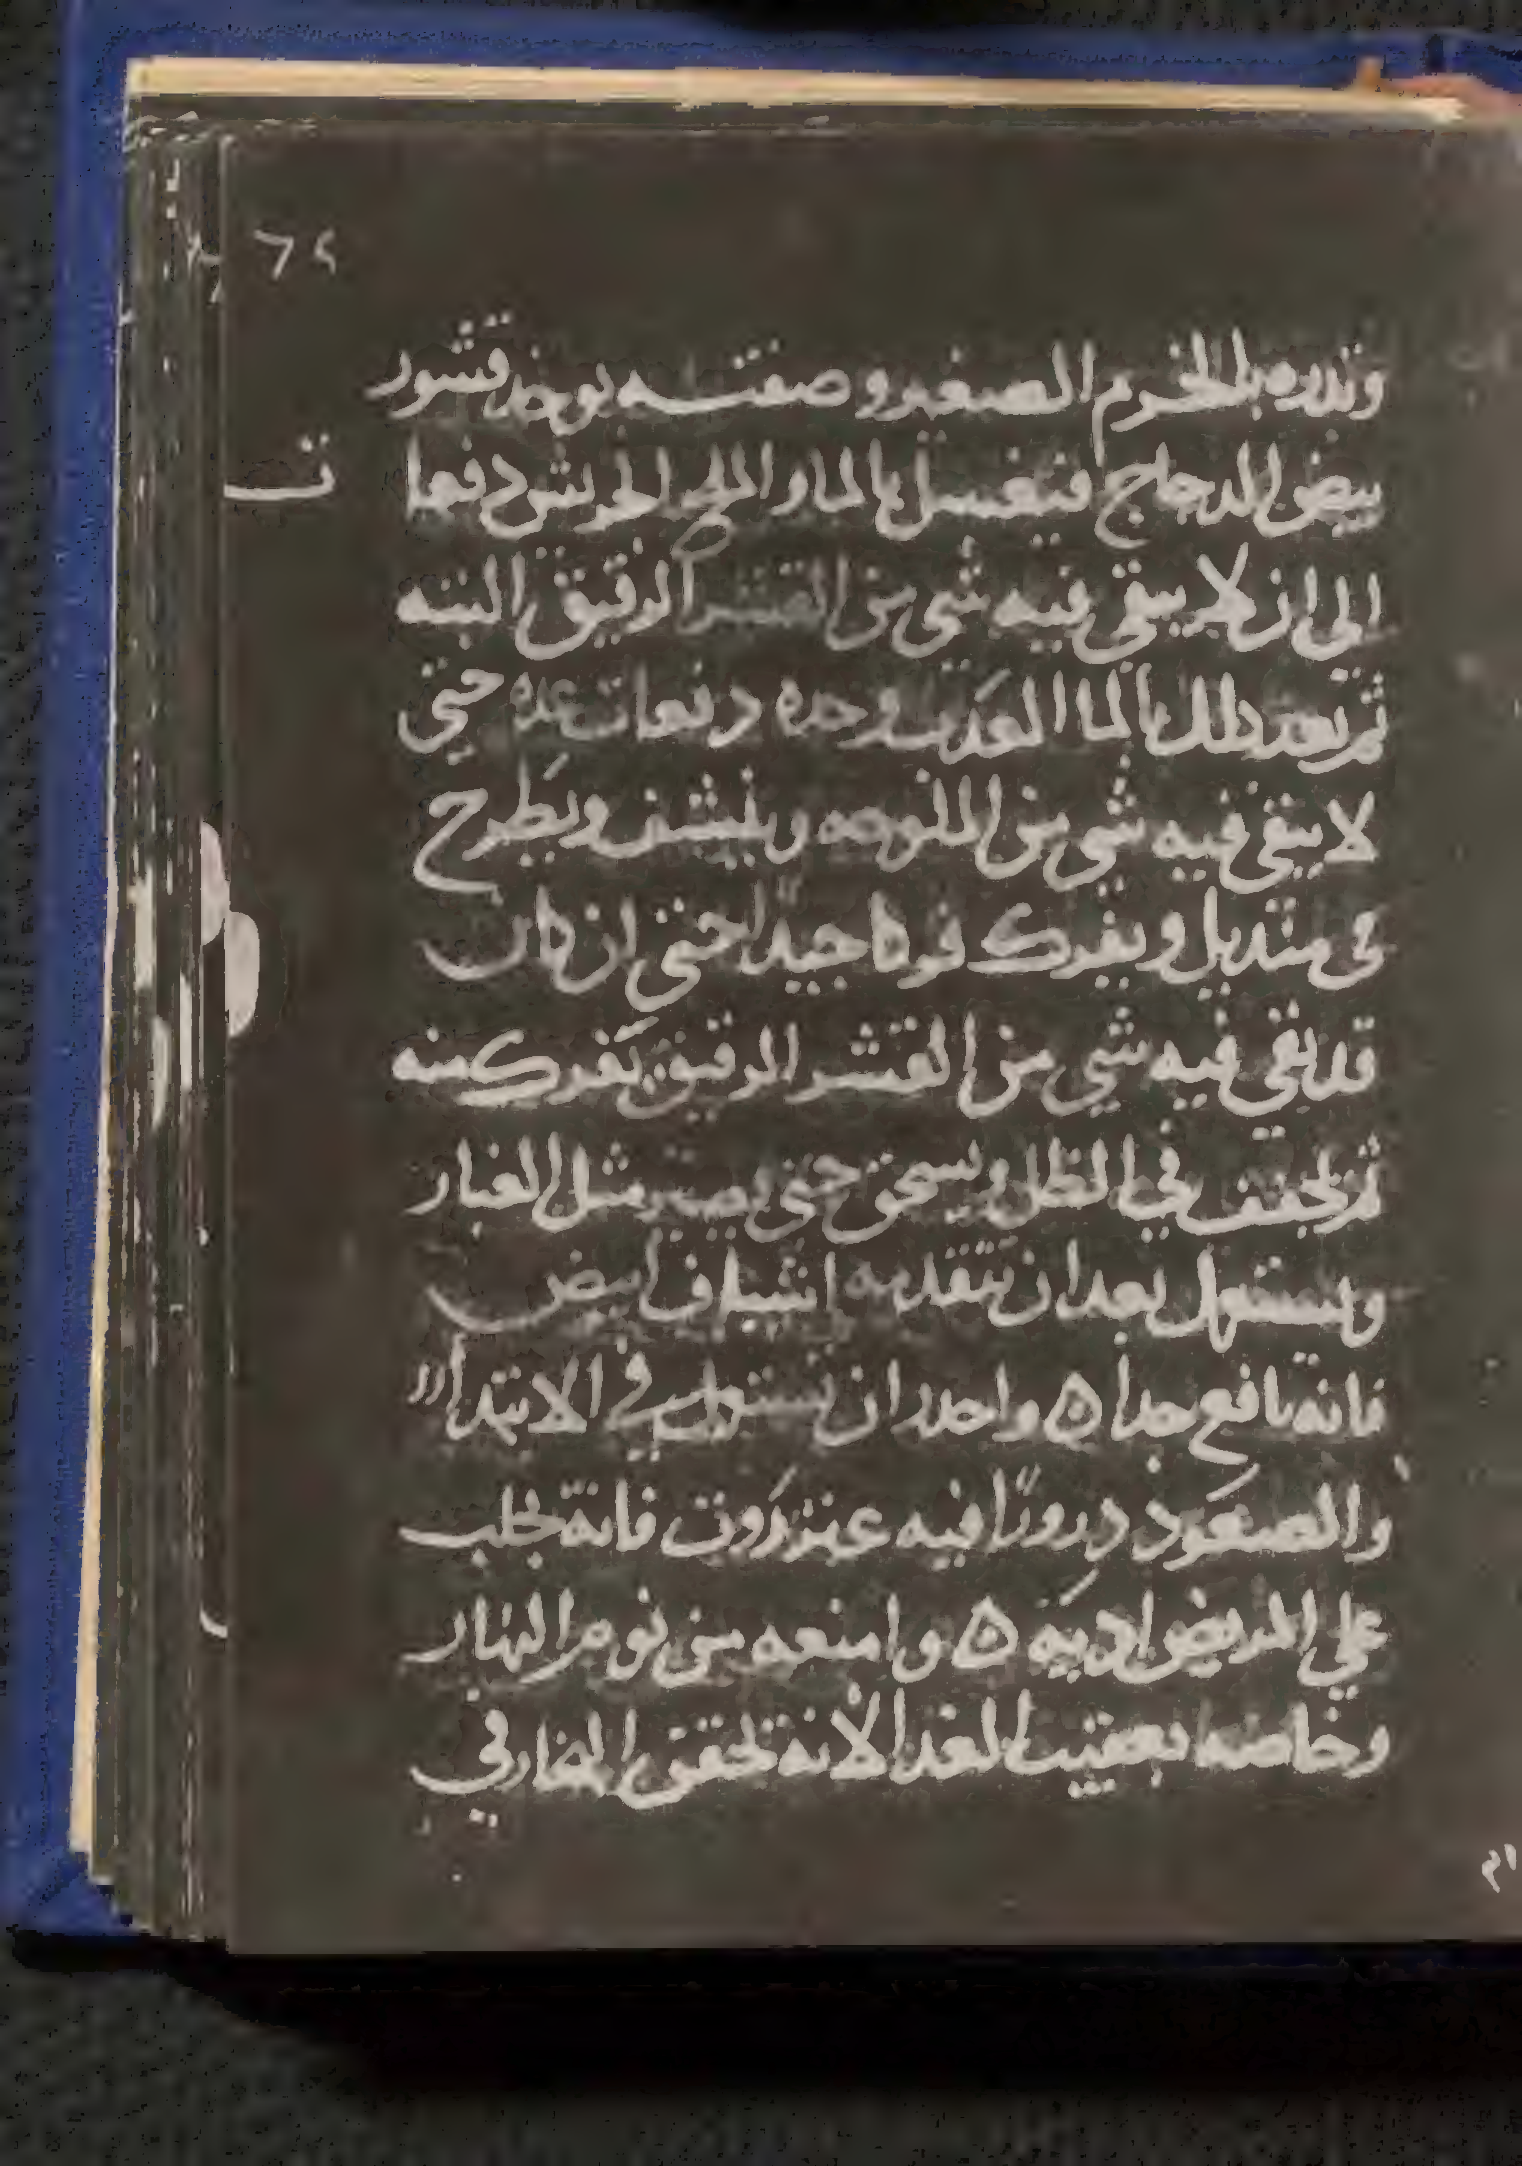 وتذره بالخرم الصغير وصفته يوخذ قشور
بيض الدجاج فيغسل بالما والملح الجريش دفعات
الي ان لا يبقي فيه شي من القشر الرقيق البته
ثم بعد ذلك بالما العذب وحده دفعات عده حتي
لا يبقي فيه شي من الملوحه وينشف ويطرح
في منديل ويفرك فركا جيدا حتي ان كان
قد بقي فيه شي من القشر الرقيق تفرك منه
ثم يجفف في الظل ويسحق حتي يصير مثل الغبار
ويستعمل بعد ان تتقدمه اشياف ابيض
فانه نافع جدا ه واحذر ان تستعمل في الابتدا
والصعود ذرورًا فيه عنزروت فانه يجلب
علي المريض اذيه ه وامنعه من نوم النهار
وخاصه بعقيب الغدا لانه يحقن البخار في